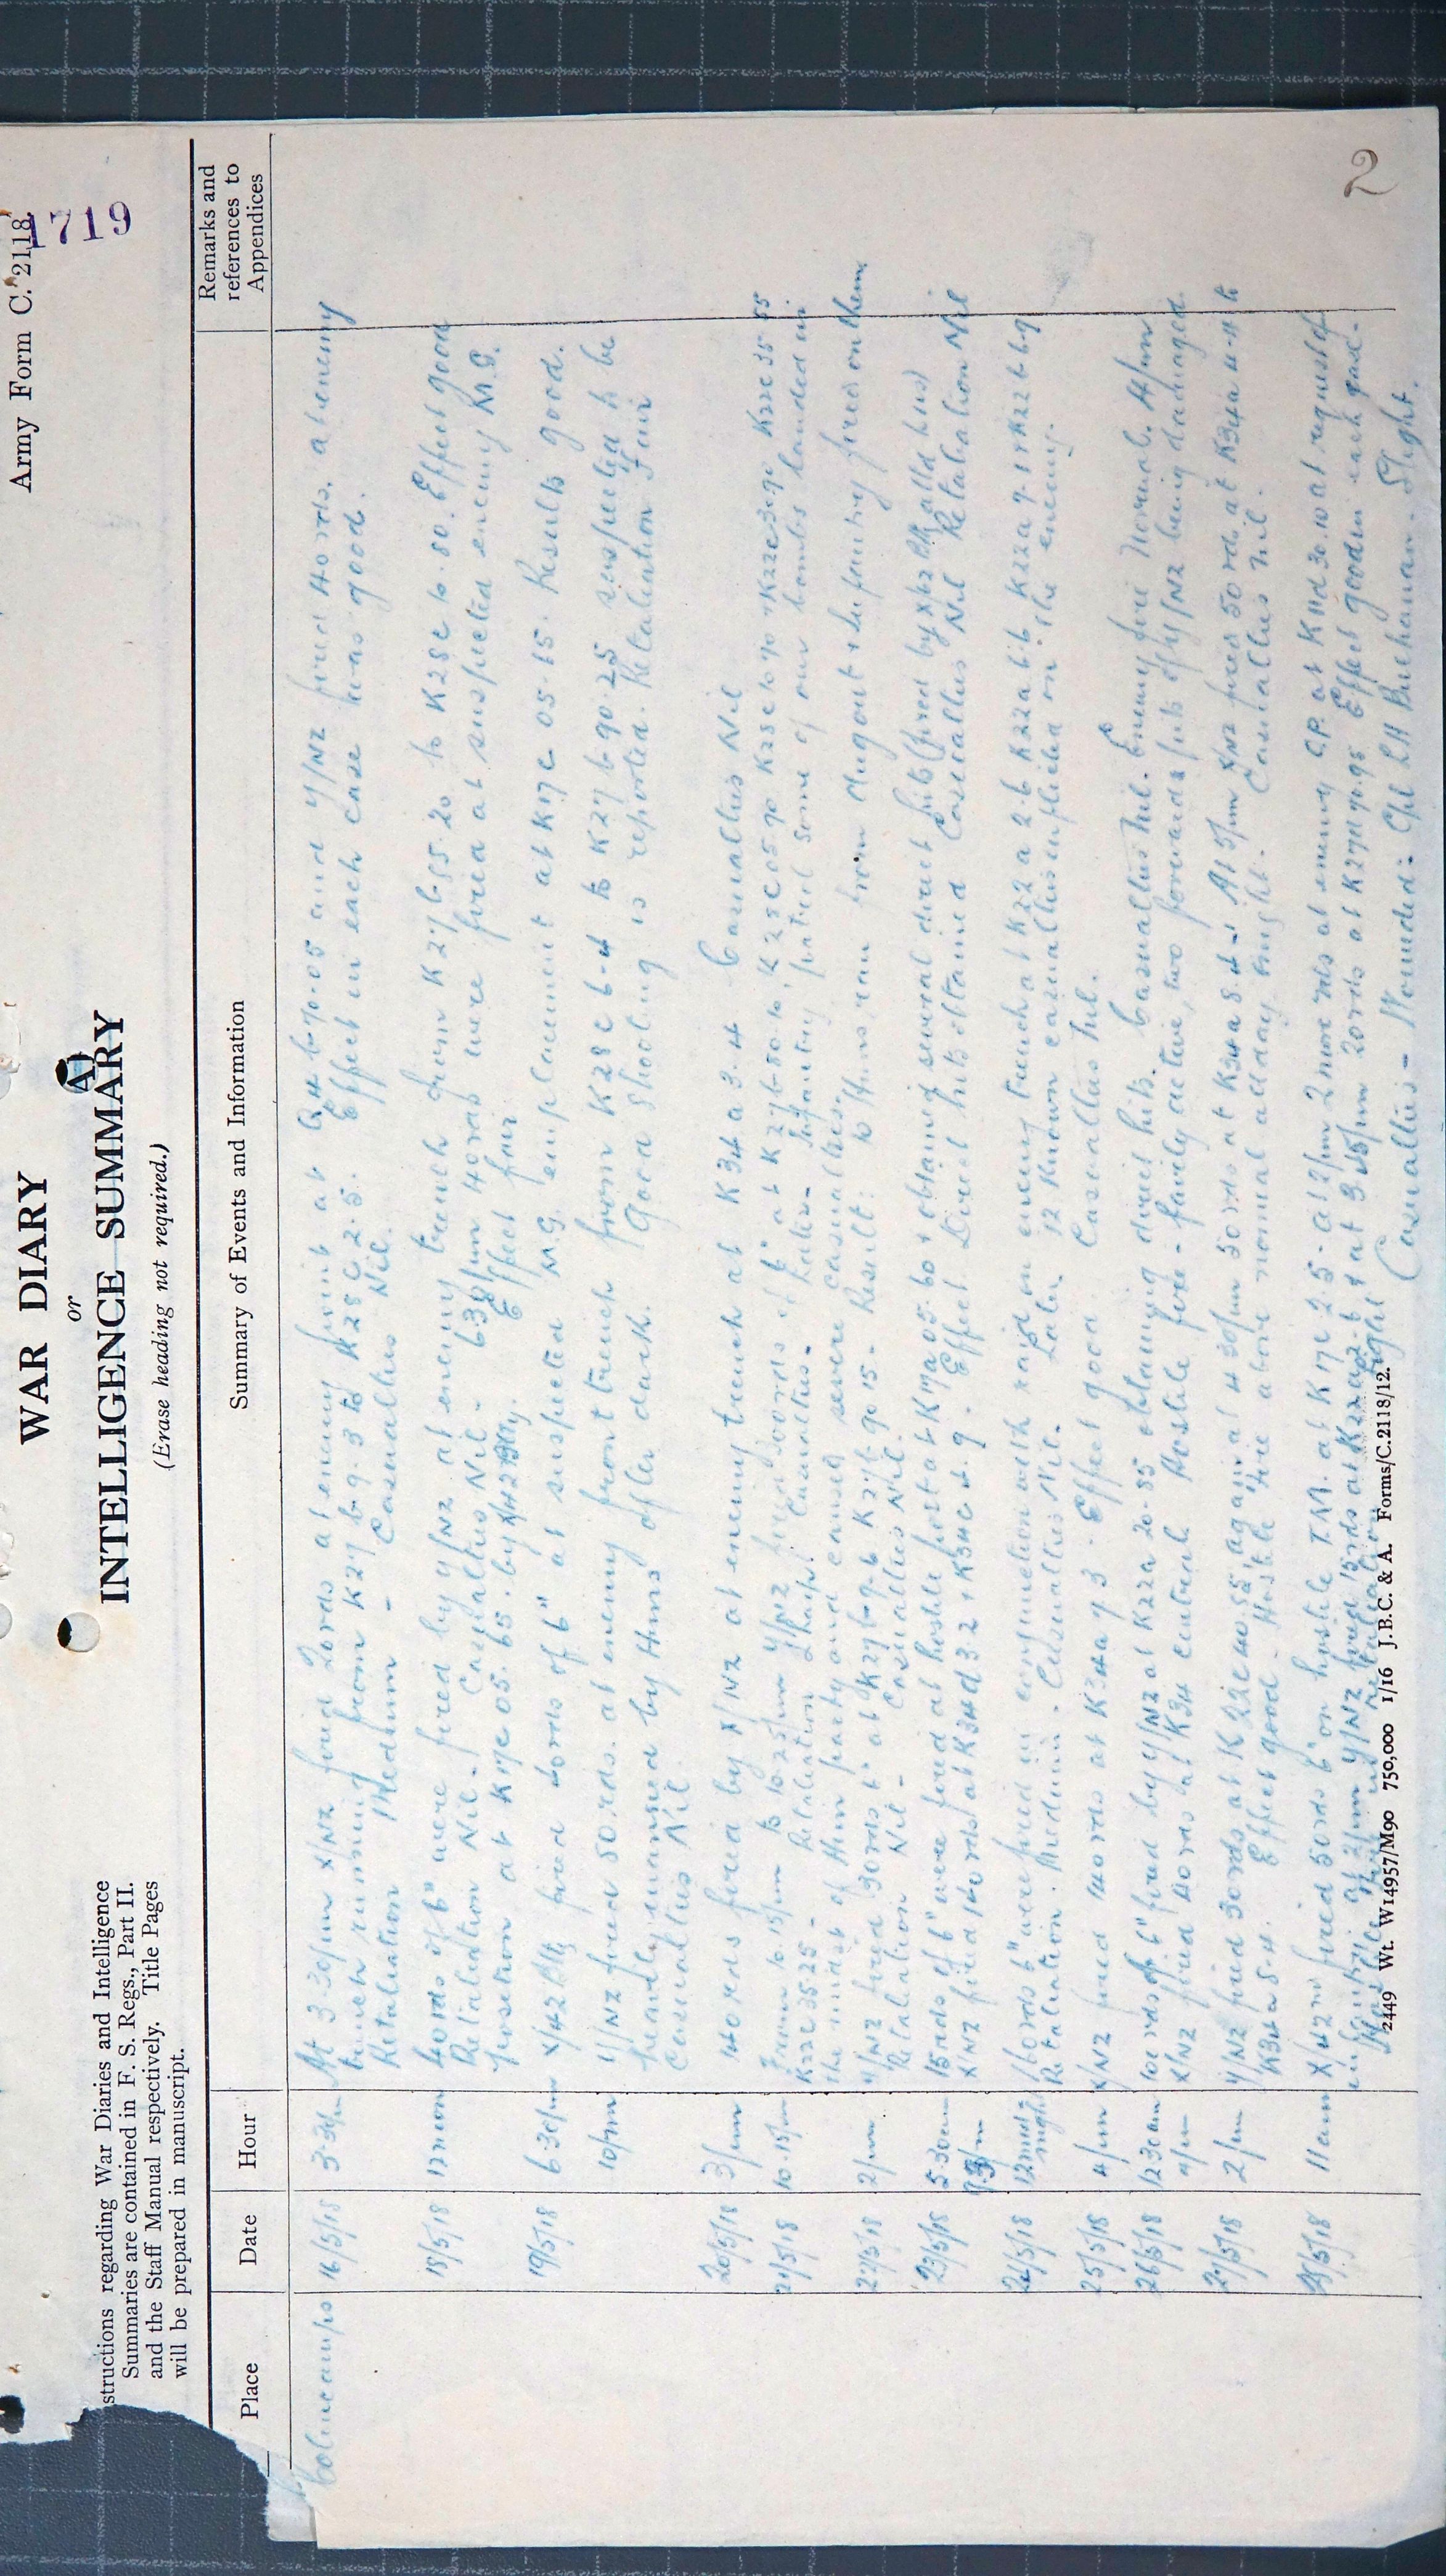 Army Form C. 2118.
1719
WAR DIARY
or
INTELLIGENCE SUMMARY
(Erase heading not required.)
structions regarding War Diaries and Intelligence
Summaries are contained in F. S. Regs., Part II.
and the Staff Manual respectively. Title Pages
will be prepared in manuscript.
Place Date Hour Summary of Events and Information Remarks and references to Appendices
Colincamps 16/5/18 3.30pm At 3.30pm X/NZ fired 20rds at enemy point at Q4b.70.05 and Y/NZ fired 40 rds. at enemy
trench running from K27b.9.3 to K28C2.5. Effect in each case was good.
Retaliation Medium - Casualties Nil.
18/5/18 12 noon 40 rds of 6" were fired by Y/NZ at enemy trench from K27b.55.20 to K28c10.80. Effect good
Retaliation Nil. Casualties Nil. 630pm 40rds were fired at suspected enemy M.G.
position at K17c05.65. by Effect fair
19/5/18 6.30pm fired 40rds of 6" at suspected M.G. emplacement at K17c05.65. Results good.
10pm Y/NZ fired 50 rds. at enemy front trench from K28c6.4 to K27b.90.25 suspected to be
heavily manned by Huns after dark. Good shooting is reported. Retaliation Fair
Casualties Nil
20/5/18 3pm 40 rds fired by X/NZ at enemy trench at K34a3.4 Casualties Nil
21/5/18 10.15pm From 10.15pm to 10.25pm Y/NZ fired rds of 6" at K27b.80.10, K28c05.90 K28c10.70 K22c30.90 K22c35.55
K22c3525 - Retaliation Casualties - Later - Infantry patrol some of our bombs landed in
the midst of Hun party and caused severe casualties.
22/5/18 2pm Y/NZ fired 30rds 6" at K27b.9.6 K27b.90.15 - Result: 10 Huns ran from dugout & Infantry fired on them.
Retaliation Nil - Casualties Nil.
23/5/18 5.30am 15rds of 6" were fired at hostile post at K17a05.60 & obtained several direct hits (fired by
X/NZ fired 140rds at K34d3.2 & K34c4.9. Effect Direct hits obtained Casualties Nil Retaliation Nil
24/5/18 12 midnight 160rds 6" were fired in conjunction with raid on enemy trench at K22a2.6 K22a6.6 K22a9.1 K22b6.9
Retaliation. Medium. Casualties Nil. Later. 12 known casualties inflicted on the enemy.
25/5/18 4pm X/NZ fired 140 rds at K34a73. Effect good. Casualties Nil.
26/5/18 1230am 100 rds of 6" fired by Y/NZ at K22a20.85 obtaining direct hits. Casualties Nil. Enemy fire Normal. 4pm
X/NZ fired 40rds at K34 central. Hostile fire - fairly active, two forward pits of Y/NZ being damaged.
27/5/18 2pm Y/NZ fired 30rds at K22c40.55, again at 430pm 50rds at K34a8.4. At 5pm X/NZ fired 50 rds at K34a4.4 to
K34a5.4. Effect good - Hostile fire above normal all day & night. Casualties Nil.
28/5/18 11am fired 50rds 6" on hostile T.M. at K17c2.5 - at 12pm 2 more rds at enemy O.P. at K11d30.10 at request of
infantry. at 2pm Y/NZ fired 15rds at & at 3.45pm 20rds at Effect good in each case -
Hostile
Casualties - Wounded: Cpl LH Buchanan. Slight.
2449 Wt. W14957/M90 750,000 1/16 J.B.C. & A. Forms/C.2118/12.
2